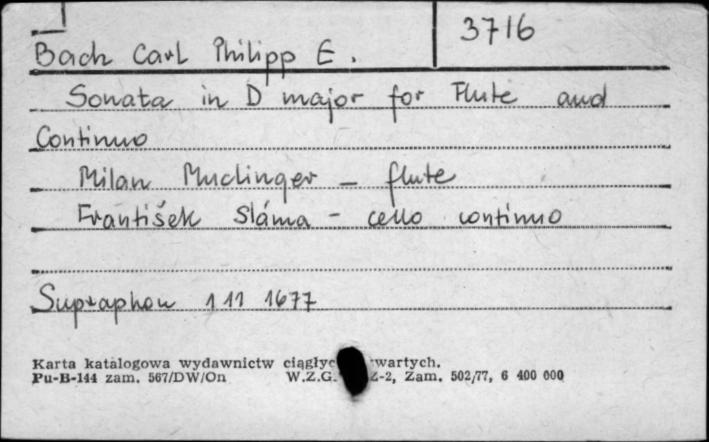 3716
Bach Carl Philipp E.
Sonata in D major for Flute and
Continuo
Milan Muclinger – flute
František Sláma – cello continuo
Supraphon 1 11 1677
Karta katalogowa wydawnictw
Pu-B-144 zam. 567/DW/On W.Z.G. Z-2, Zam. 502/77, 6 400 000